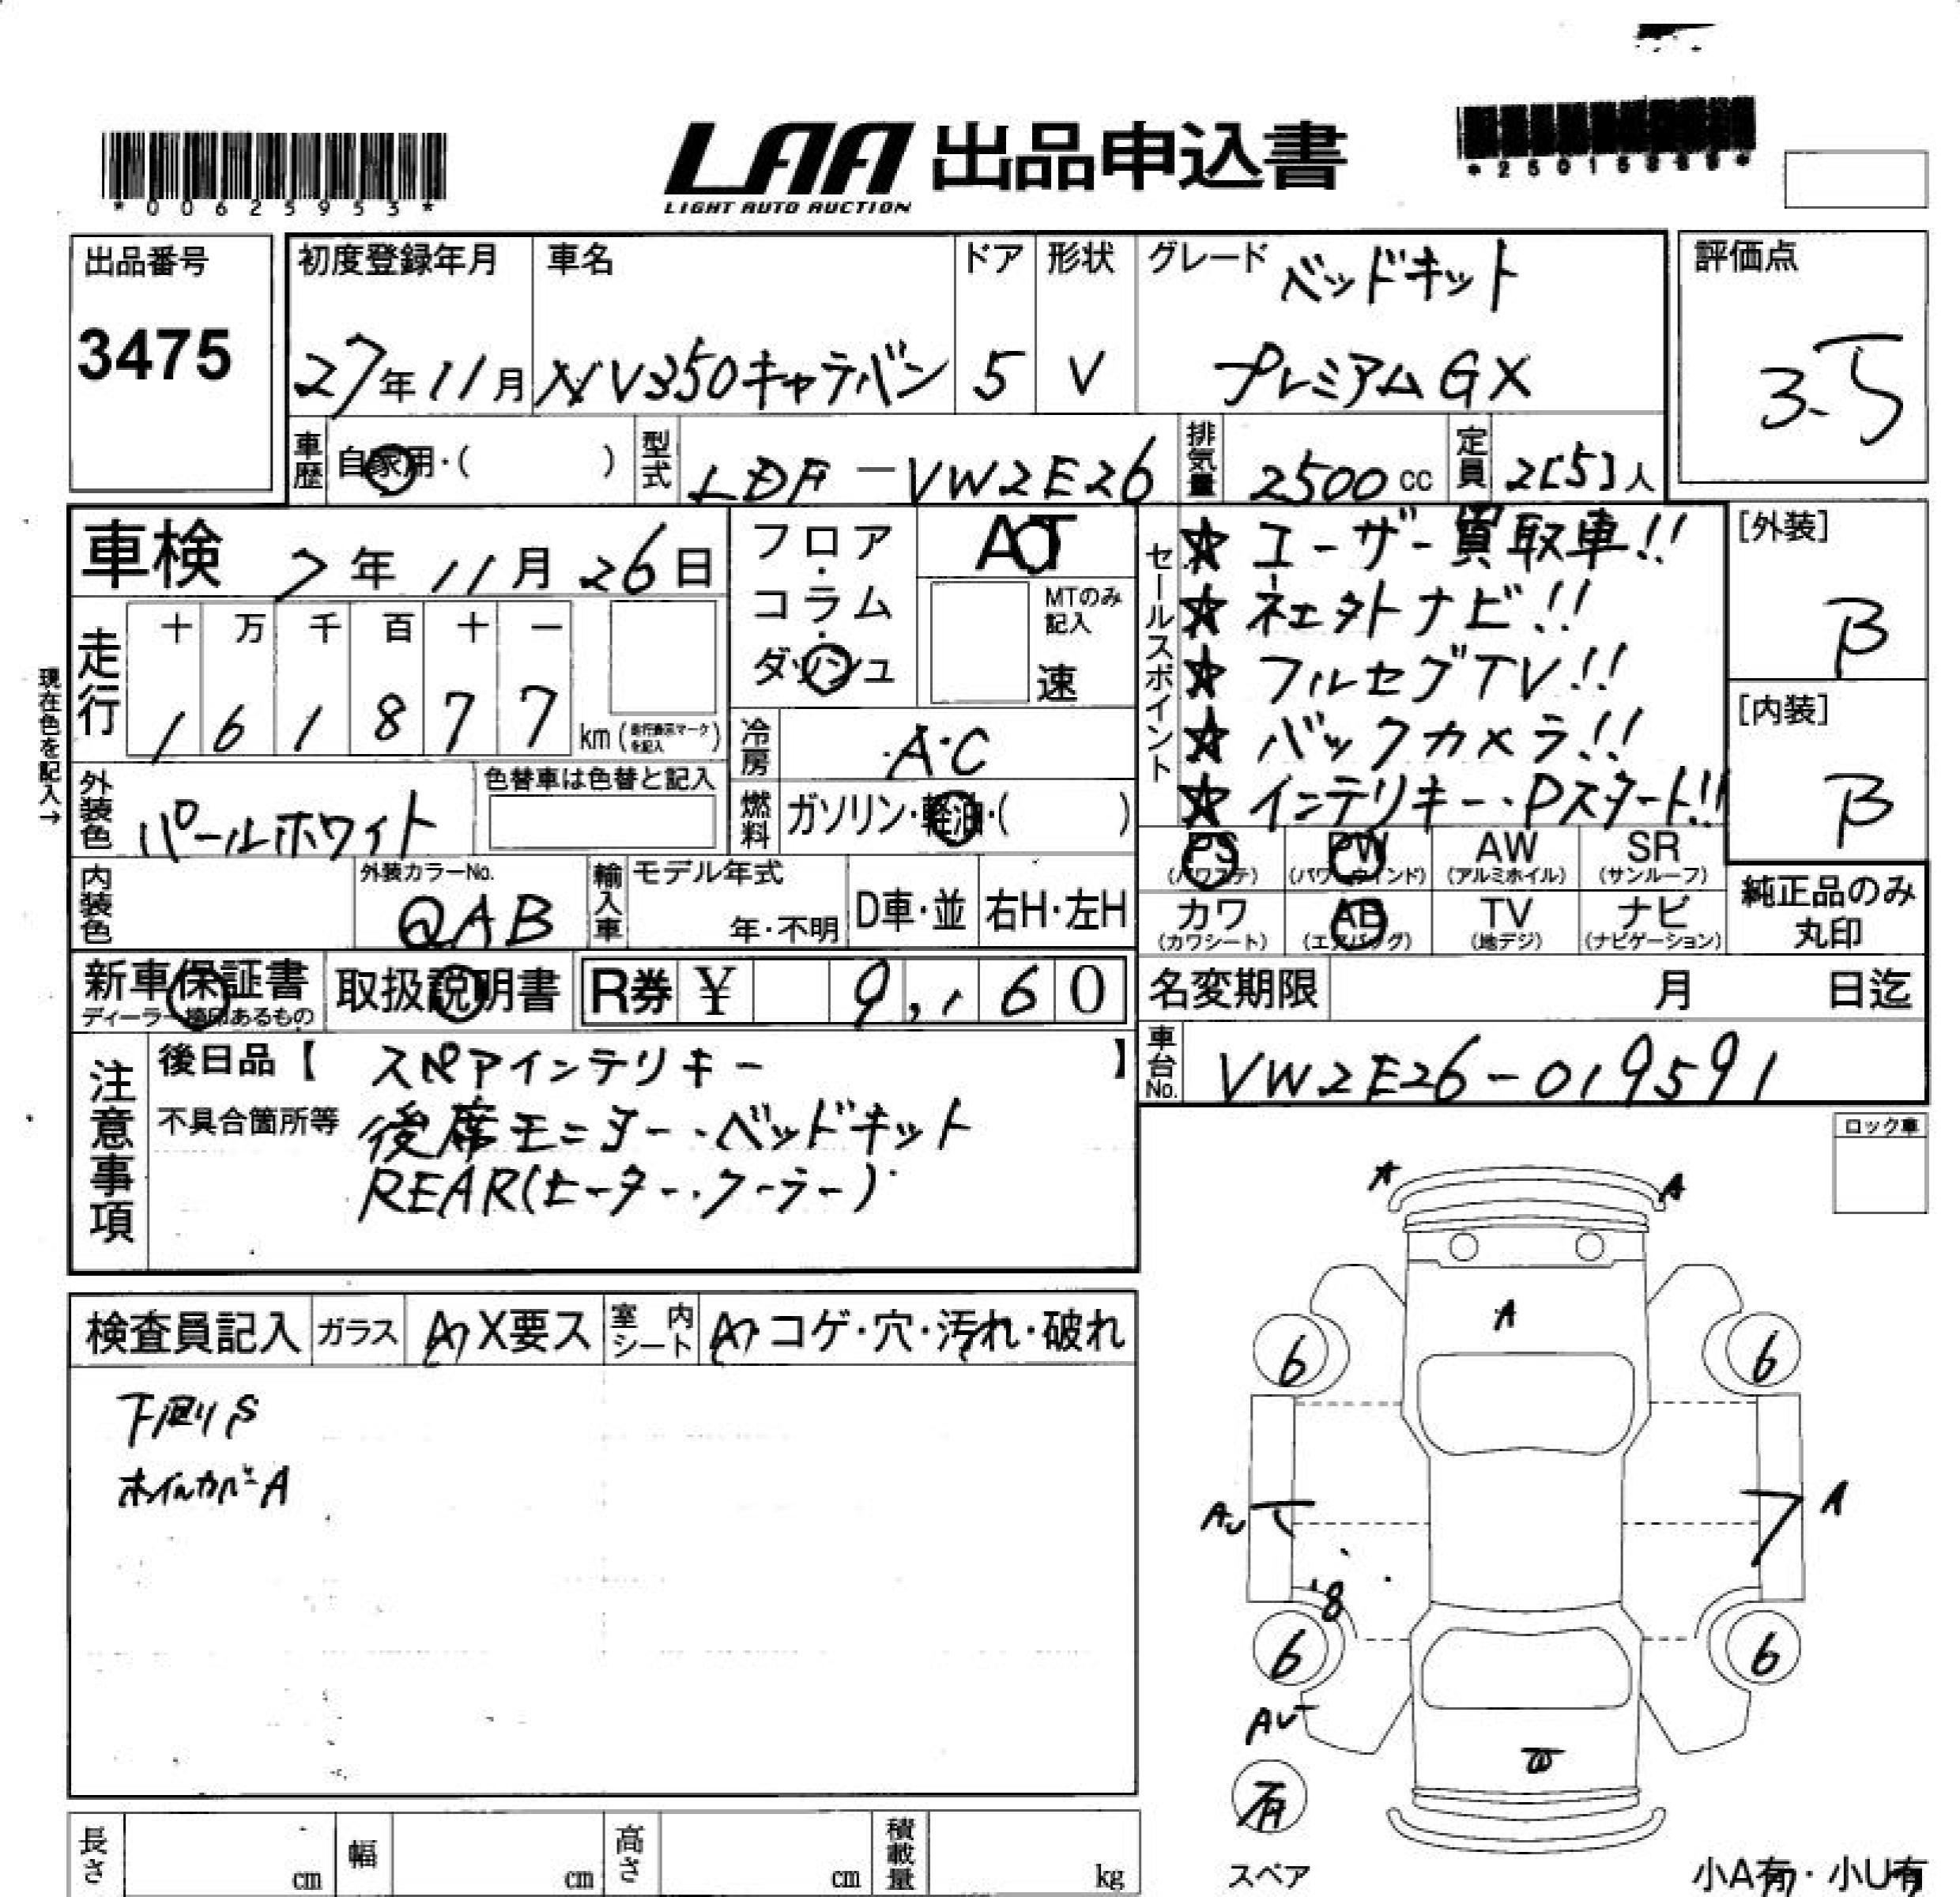 *00625953*
LAA 出品申込書
LIGHT AUTO AUCTION
出品番号 初度登録年月 車名 ドア 形状 グレード ベッドキット 評価点
3475 27年11月 NV350キャラバン 5 V プレミアムGX 3.5
車歴 自家用・( ) 型式 LDF-VW2E26 排気量 2500cc 定員 2[5]人
車検 7年11月26日 フロア・コラム・ダッシュ AT
MTのみ記入 速
セールスポイント
☆ユーザー買取車!!
☆ネェタトナビ!!
☆フルセグTV!!
☆バックカメラ!!
☆インテリキー・Pスタート!!
[外装] B
[内装] B
現在色を記入→
走行 十 万 千 百 十 一
1 6 1 8 7 7 km(走行表示マークを記入)
冷房 AC
外装色 パールホワイト 色替車は色替と記入
燃料 ガソリン・軽油・( )
内装色 外装カラーNo. QAB 輸入車 モデル年式 年・不明 D車・並 右H・左H
PS (パワステ) PW (パワーウインド) AW (アルミホイル) SR (サンルーフ)
カワ (カワシート) AB (エアバッグ) TV (地デジ) ナビ (ナビゲーション)
純正品のみ丸印
新車保証書 ディーラー捺印あるもの 取扱説明書 R券 ¥ 9,160
名変期限 月 日迄
車台No. VW2E26-019591
注意事項
後日品【 スペアインテリキー 】
不具合箇所等 後席モニター・ベッドキット
REAR(ヒーター・クーラー)
ロック車
検査員記入 ガラス A X要ス 室内シート コゲ・穴・汚れ・破れ
下廻りS
ホイルカバーA
A A
A
6 6
AU A
6 6
AU
有
スペア
小A有・小U有
長さ cm 幅 cm 高さ cm 積載量 kg